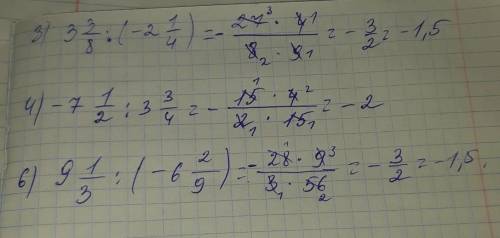 3) 3 3/8 : (-2 1/4) = - (27³ · 4¹)/(8₂ · 9₁) = - 3/2 = -1,5
4) -7 1/2 : 3 3/4 = - (15¹ · 4²)/(2₁ · 15₁) = -2
6) 9 1/3 : (-6 2/9) = - (28¹ · 9³)/(3₁ · 56₂) = - 3/2 = -1,5.